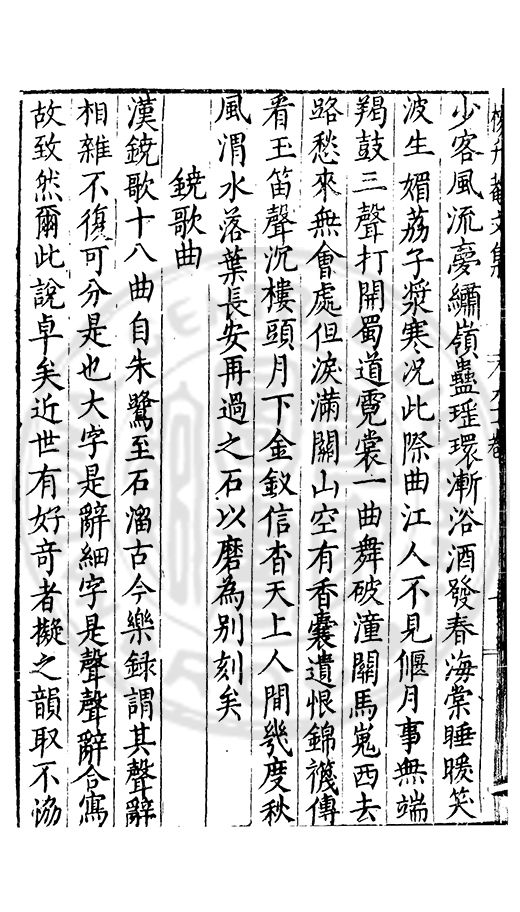 少客風流夢繡嶺蠱瑶環漸浴酒發春海棠睡暖笑
波生媚荔子漿寒况此際曲江人不見偃月事無端
羯鼓三聲打開蜀道霓裳一曲舞破潼關馬嵬西去
路愁來無會處但淚滿關山空有香囊遺恨錦襪傳
看玉笛聲沉樓頭月下金釵信杳天上人間幾度秋
風渭水落葉長安再過之石以磨為别刻矣
鐃歌曲
漢鐃歌十八曲自朱鷺至石溜古今樂録謂其聲辭
相雜不復可分是也大字是辭細字是聲聲辭合寫
故致然爾此說卓矣近世有好奇者擬之韻取不協